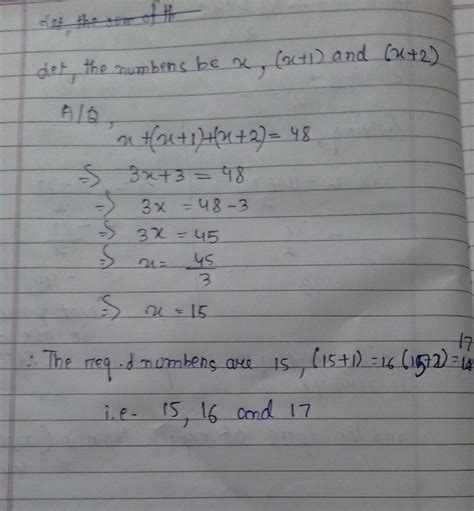 let, the sum of th
let, the numbers be x, (x+1) and (x+2)
A/Q,
x+(x+1)+(x+2)=48
⇒ 3x+3 = 48
⇒ 3x = 48-3
⇒ 3x = 45
⇒ x= 45/3
⇒ x = 15
∴ The req.d numbers are 15, (15+1) =16 (15+2)=17
i.e- 15, 16 and 17